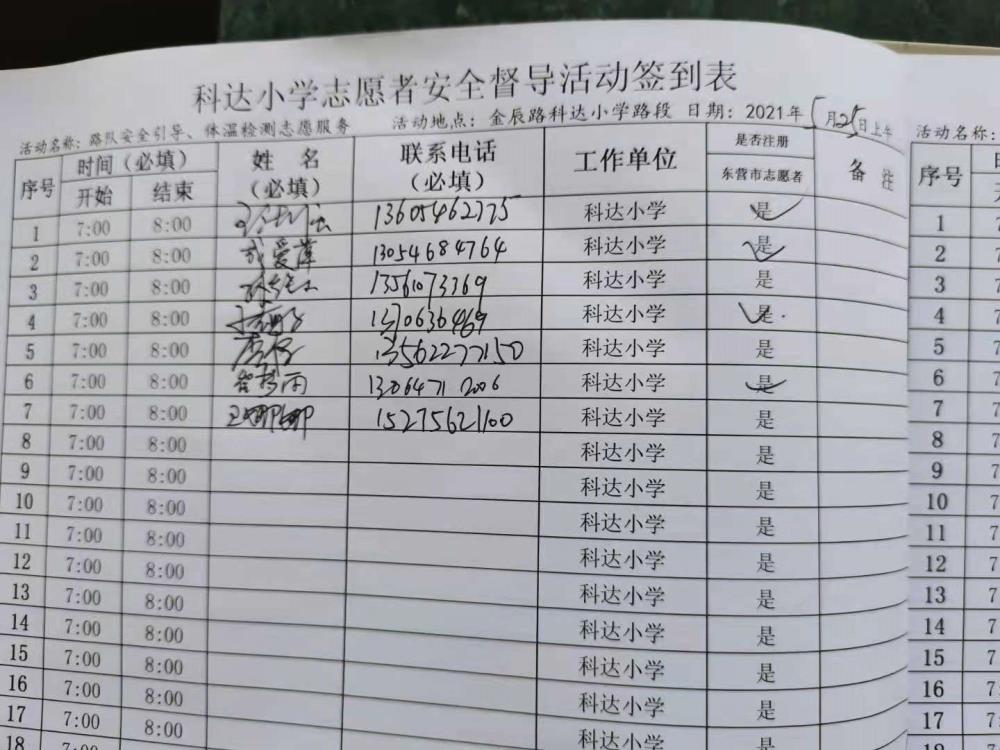 科达小学志愿者安全督导活动签到表
活动名称：路队安全引导、体温检测志愿服务 活动地点：金辰路科达小学路段 日期：2021年5月25日上午
序号 时间（必填） 姓名（必填） 联系电话（必填） 工作单位 是否注册东营市志愿者 备注
开始 结束
1 7:00 8:00 13605462775 科达小学 是
2 7:00 8:00 成爱萍 13054684764 科达小学 是
3 7:00 8:00 13561073369 科达小学 是
4 7:00 8:00 科达小学 是
5 7:00 8:00 13562277150 科达小学 是
6 7:00 8:00 13064712006 科达小学 是
7 7:00 8:00 王娜娜 15275621100 科达小学 是
8 7:00 8:00 科达小学 是
9 7:00 8:00 科达小学 是
10 7:00 8:00 科达小学 是
11 7:00 8:00 科达小学 是
12 7:00 8:00 科达小学 是
13 7:00 8:00 科达小学 是
14 7:00 8:00 科达小学 是
15 7:00 8:00 科达小学 是
16 7:00 8:00 科达小学 是
17 7:00 8:00 科达小学 是
18 7:00 科达小学 是
活动名称：
序号
1
2
3
4
5
6
7
8
9
10
11
12
13
14
15
16
17